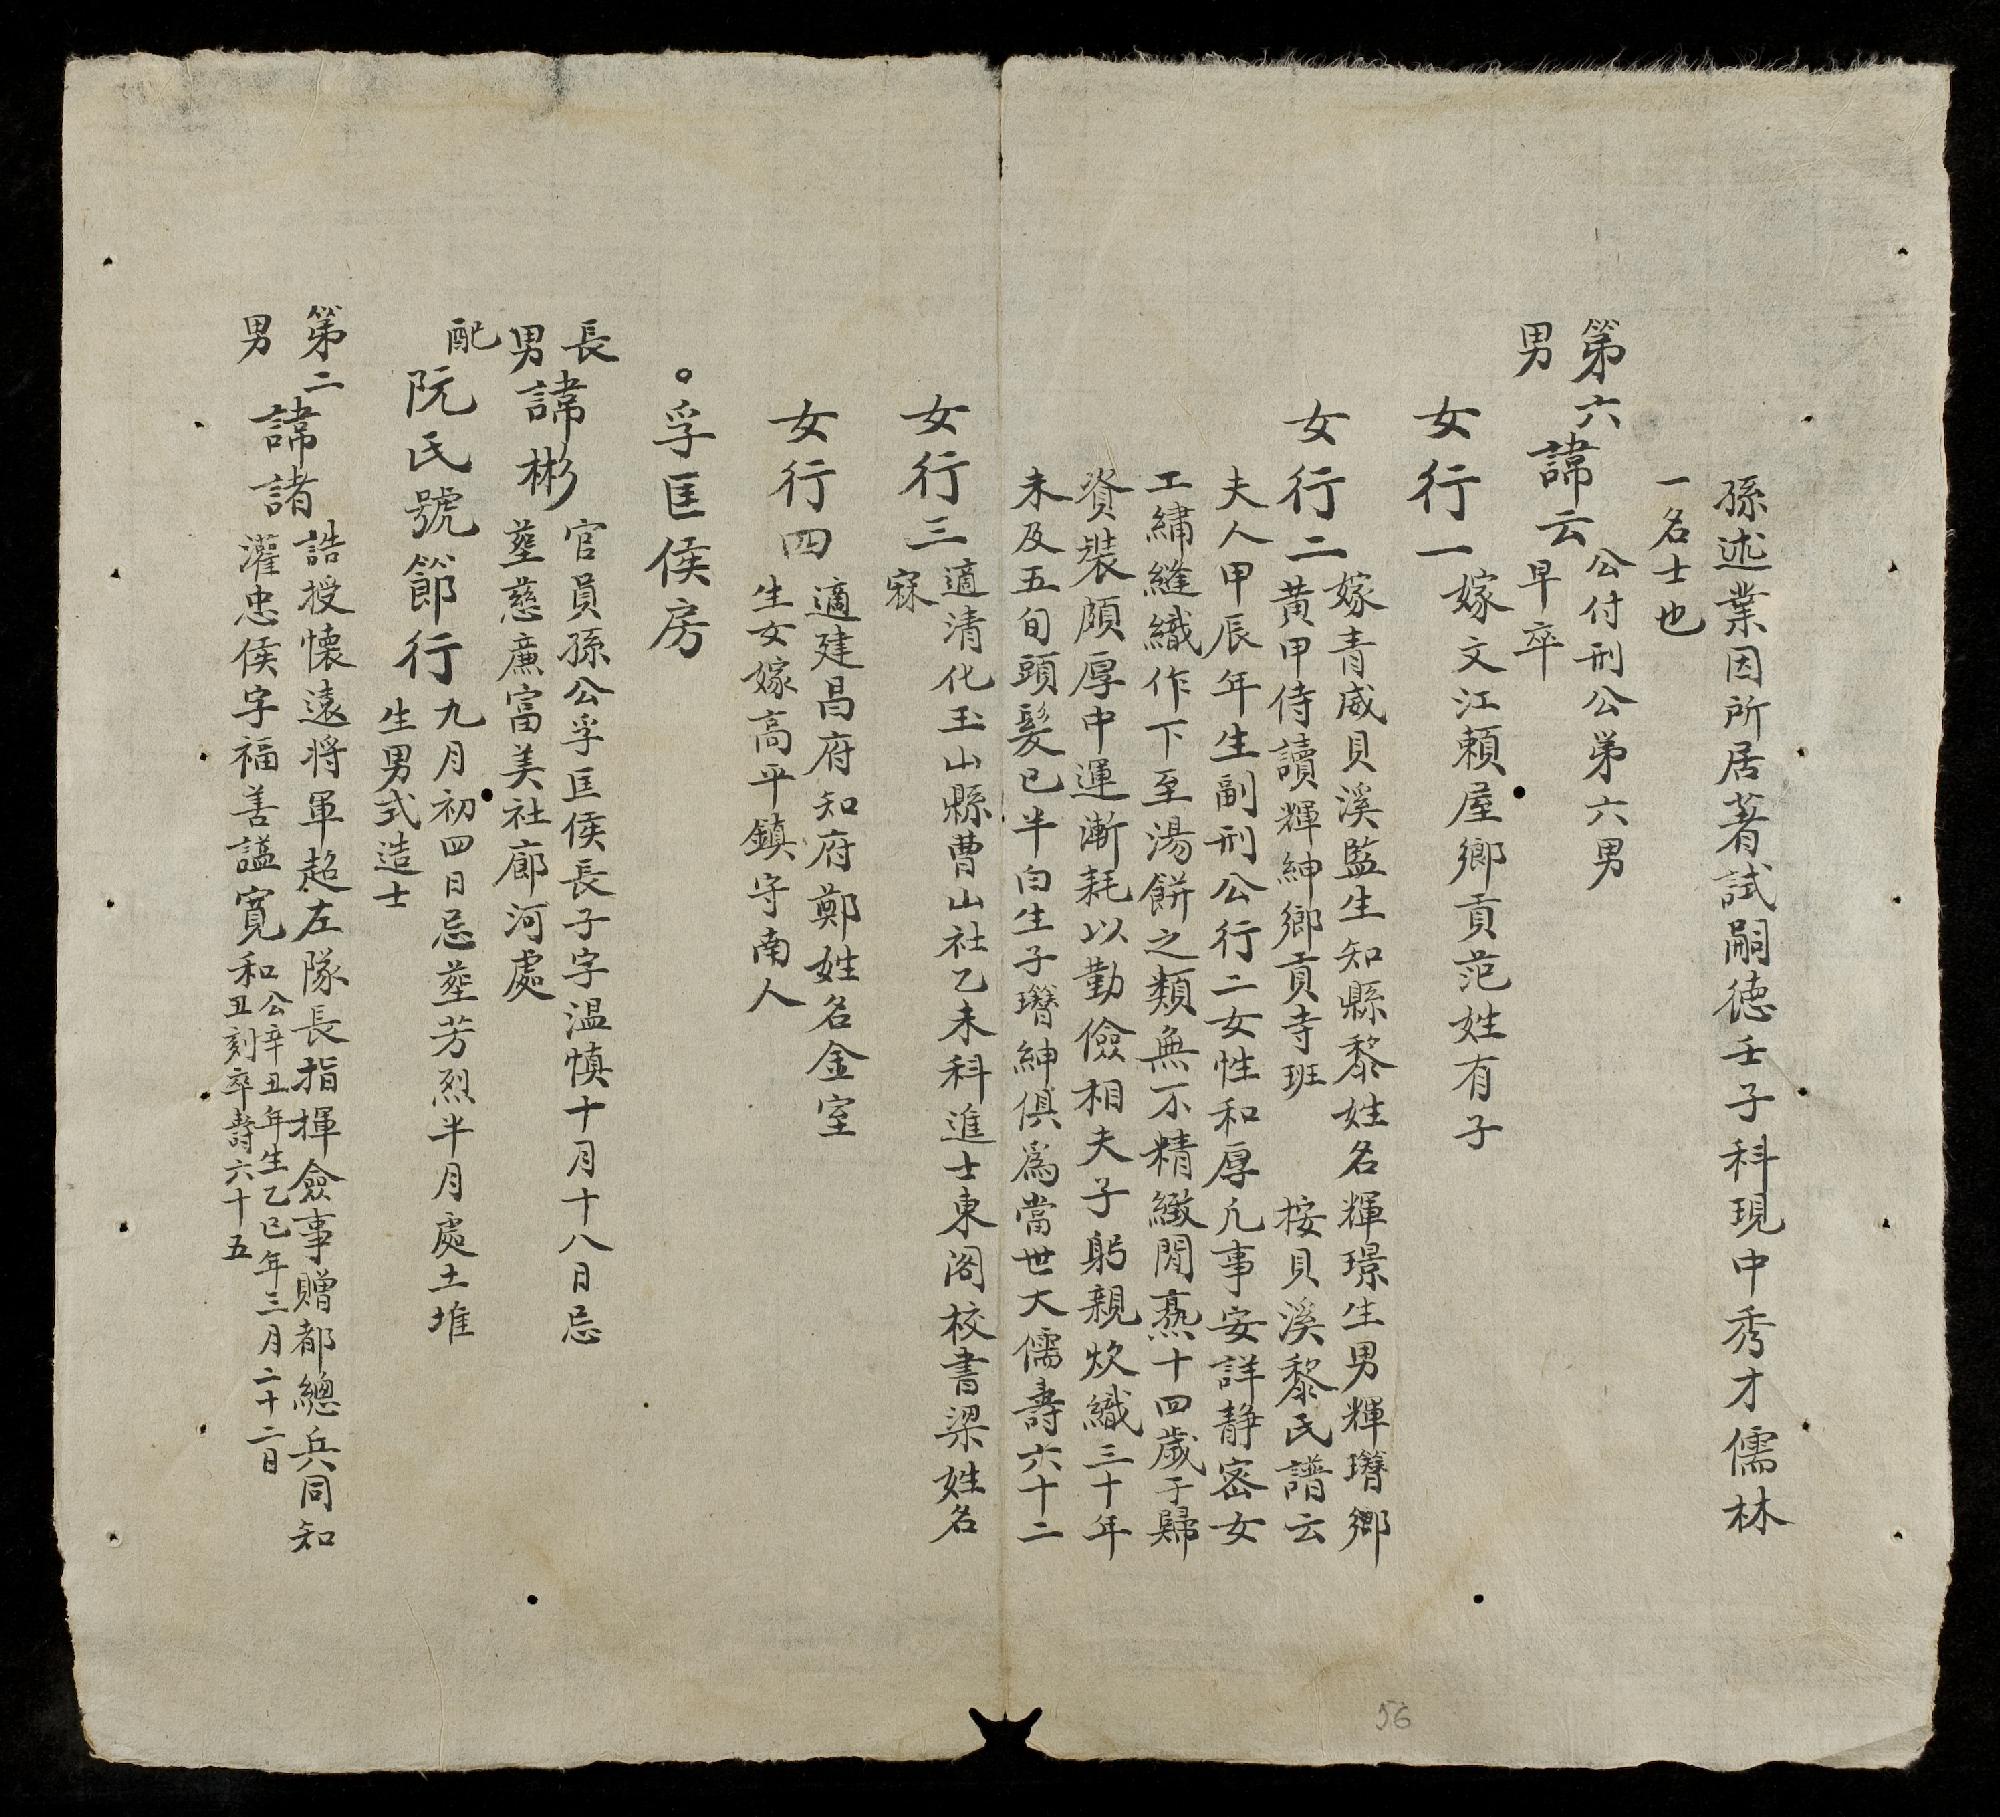 孫述業因所居著試嗣德壬子科現中秀才儒林
一名士也
第六男
諱云
公付刑公第六男
早卒
女行一
嫁文江賴屋鄉貢范姓有子
女行二
嫁青威貝溪監生知縣黎姓名輝璟生男輝瓚鄉
黃甲侍讀輝紳鄉貢寺班 按貝溪黎氏譜云
夫人甲辰年生副刑公行二女性和厚凢事安詳静密女
工繡縫織作下至湯餅之類無不精緻閒爇十四歲于歸
資裝頗厚中運漸耗以勤儉相夫子躬親炊織三十年
未及五旬頭髮已半白生子瓚紳俱爲當世大儒壽六十二
女行三
適清化玉山縣曹山社乙未科進士東閣校書梁姓名
寐
女行四
適建昌府知府鄭姓名金室
生女嫁高平鎮守南人
。孚匡侯房
長男
諱彬
官員孫公孚匡侯長子字温慎十月十八日忌
塟慈廉富美社廊河處
配
阮氏號節行
九月初四日忌塟芳烈半月處土堆
生男式造士
第二男
諱諸
誥授懷遠将軍超左隊長指揮僉事贈都總兵同知
灌忠侯字福善謚寬和
公辛丑年生乙巳年三月二十二日
丑刻卒壽六十五
56